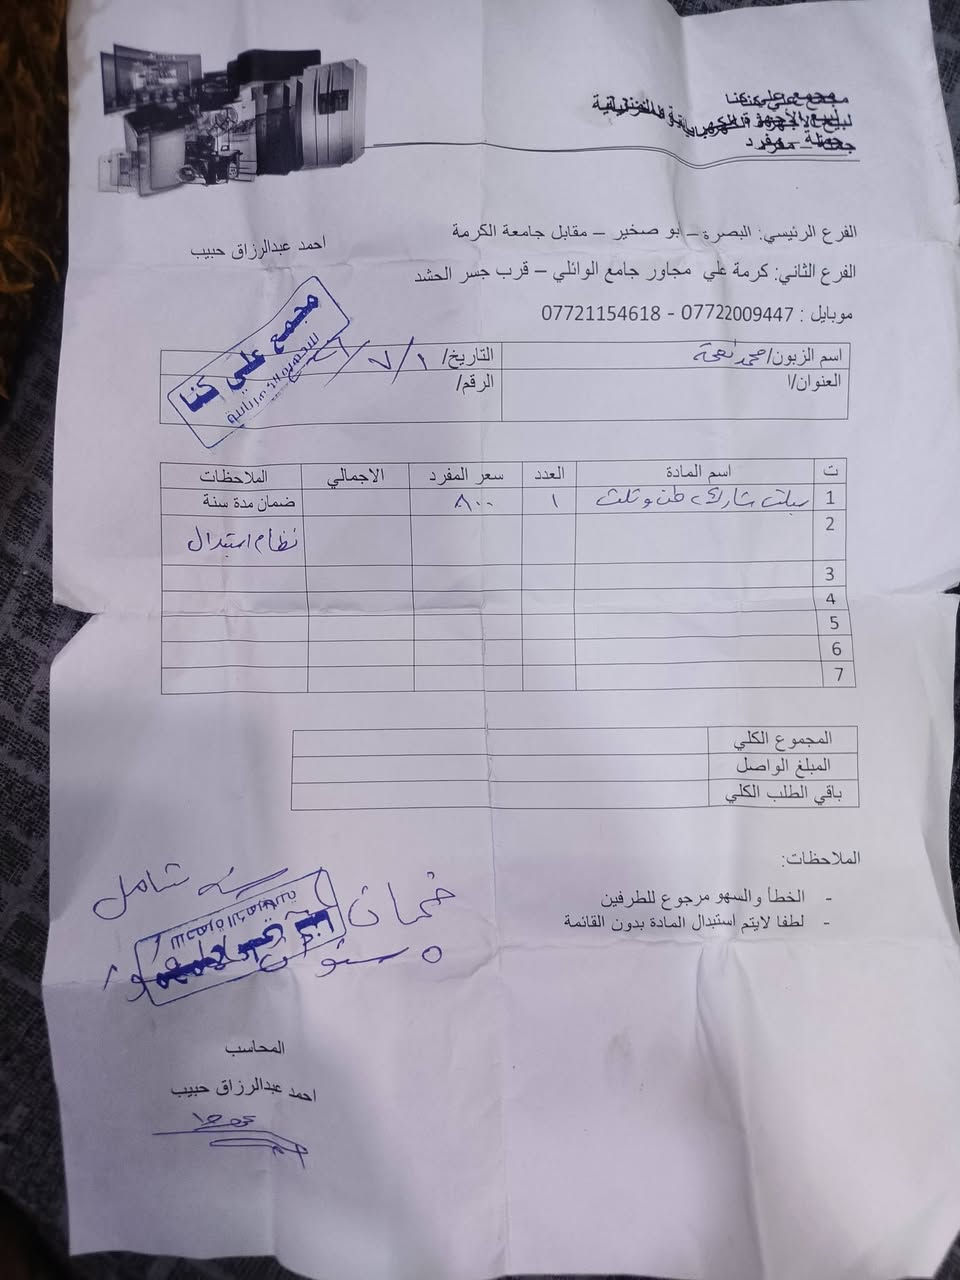 مجمع علي كنا
لبيع الأجهزة الكهربائية والمنزلية
جملة – مفرد
الفرع الرئيسي: البصرة – ابو صخير – مقابل جامعة الكرمة
احمد عبدالرزاق حبيب
الفرع الثاني: كرمة علي مجاور جامع الوائلي – قرب جسر الحشد
موبايل : 07722009447 - 07721154618
مجمع علي كنا
اسم الزبون/ محمد نعمة
التاريخ/ ١/٧/
العنوان/ا
الرقم/
ت اسم المادة العدد سعر المفرد الاجمالي الملاحظات
1 سبلت شارك طن وثلث ١ ٨٠٠ ضمان مدة سنة
2 نظام استبدال
3
4
5
6
7
المجموع الكلي
المبلغ الواصل
باقي الطلب الكلي
الملاحظات:
- الخطأ والسهو مرجوع للطرفين
- لطفا لايتم استبدال المادة بدون القائمة
ضمان سنة شامل
٥ سنوات
المحاسب
احمد عبدالرزاق حبيب